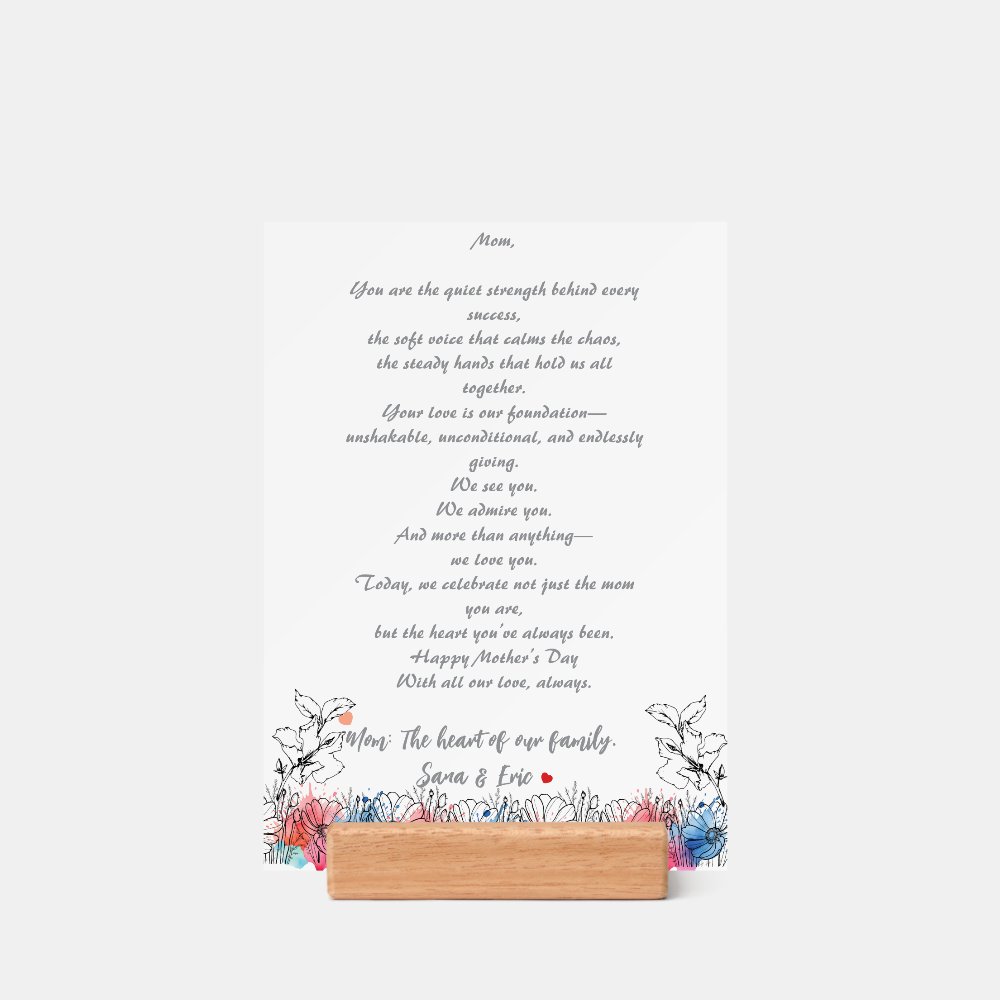 Mom,
You are the quiet strength behind every
success,
the soft voice that calms the chaos,
the steady hands that hold us all
together.
Your love is our foundation—
unshakable, unconditional, and endlessly
giving.
We see you.
We admire you.
And more than anything—
we love you.
Today, we celebrate not just the mom
you are,
but the heart you've always been.
Happy Mother's Day
With all our love, always.
Mom: The heart of our family.
Sana & Eric